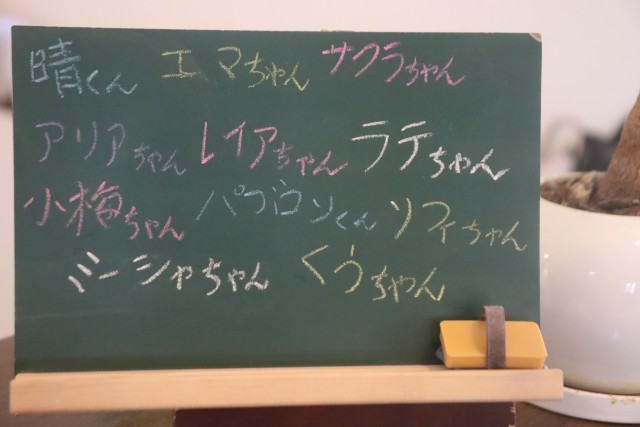 晴くん エマちゃん サクラちゃん
アリアちゃん レイアちゃん ラテちゃん
小梅ちゃん パブロンくん ソフィちゃん
ミーシャちゃん くうちゃん